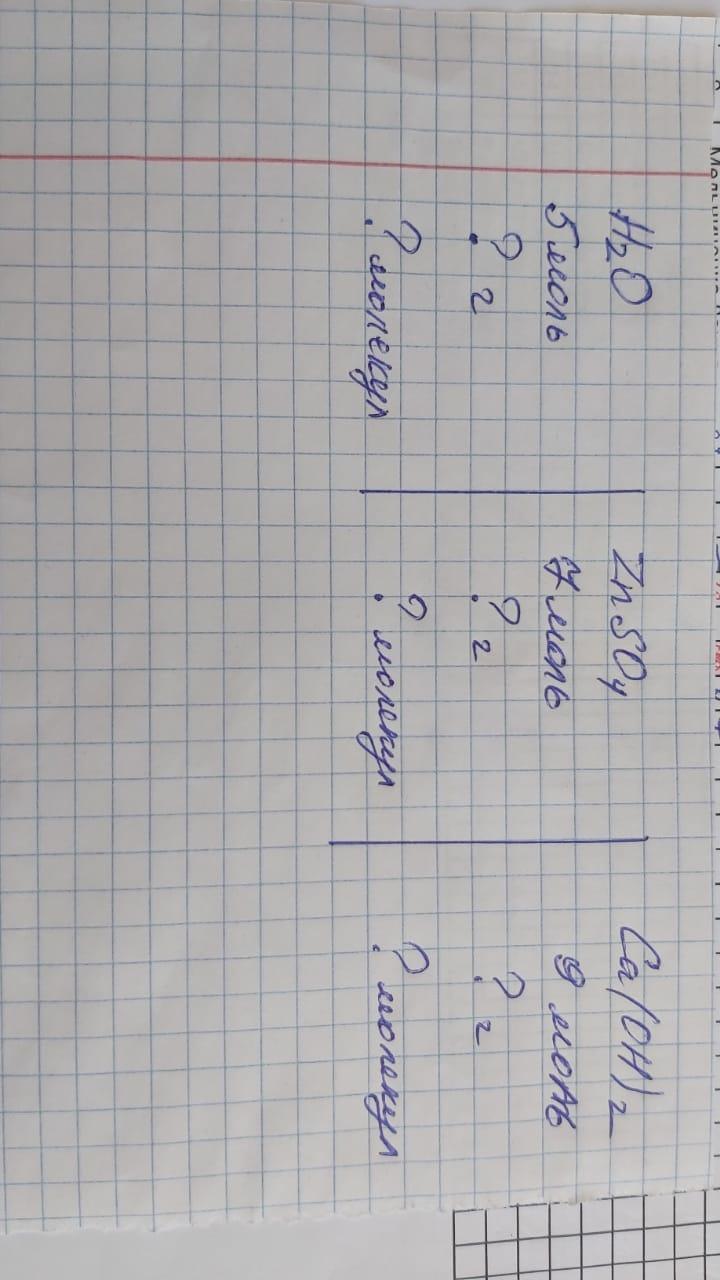 H₂O
5 моль
? г
? молекул
ZnSO₄
7 моль
? г
? молекул
Ca(OH)₂
9 моль
? г
? молекул